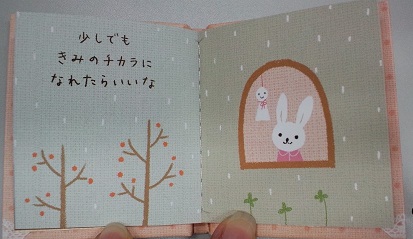 少しでも
きみのチカラに
なれたらいいな